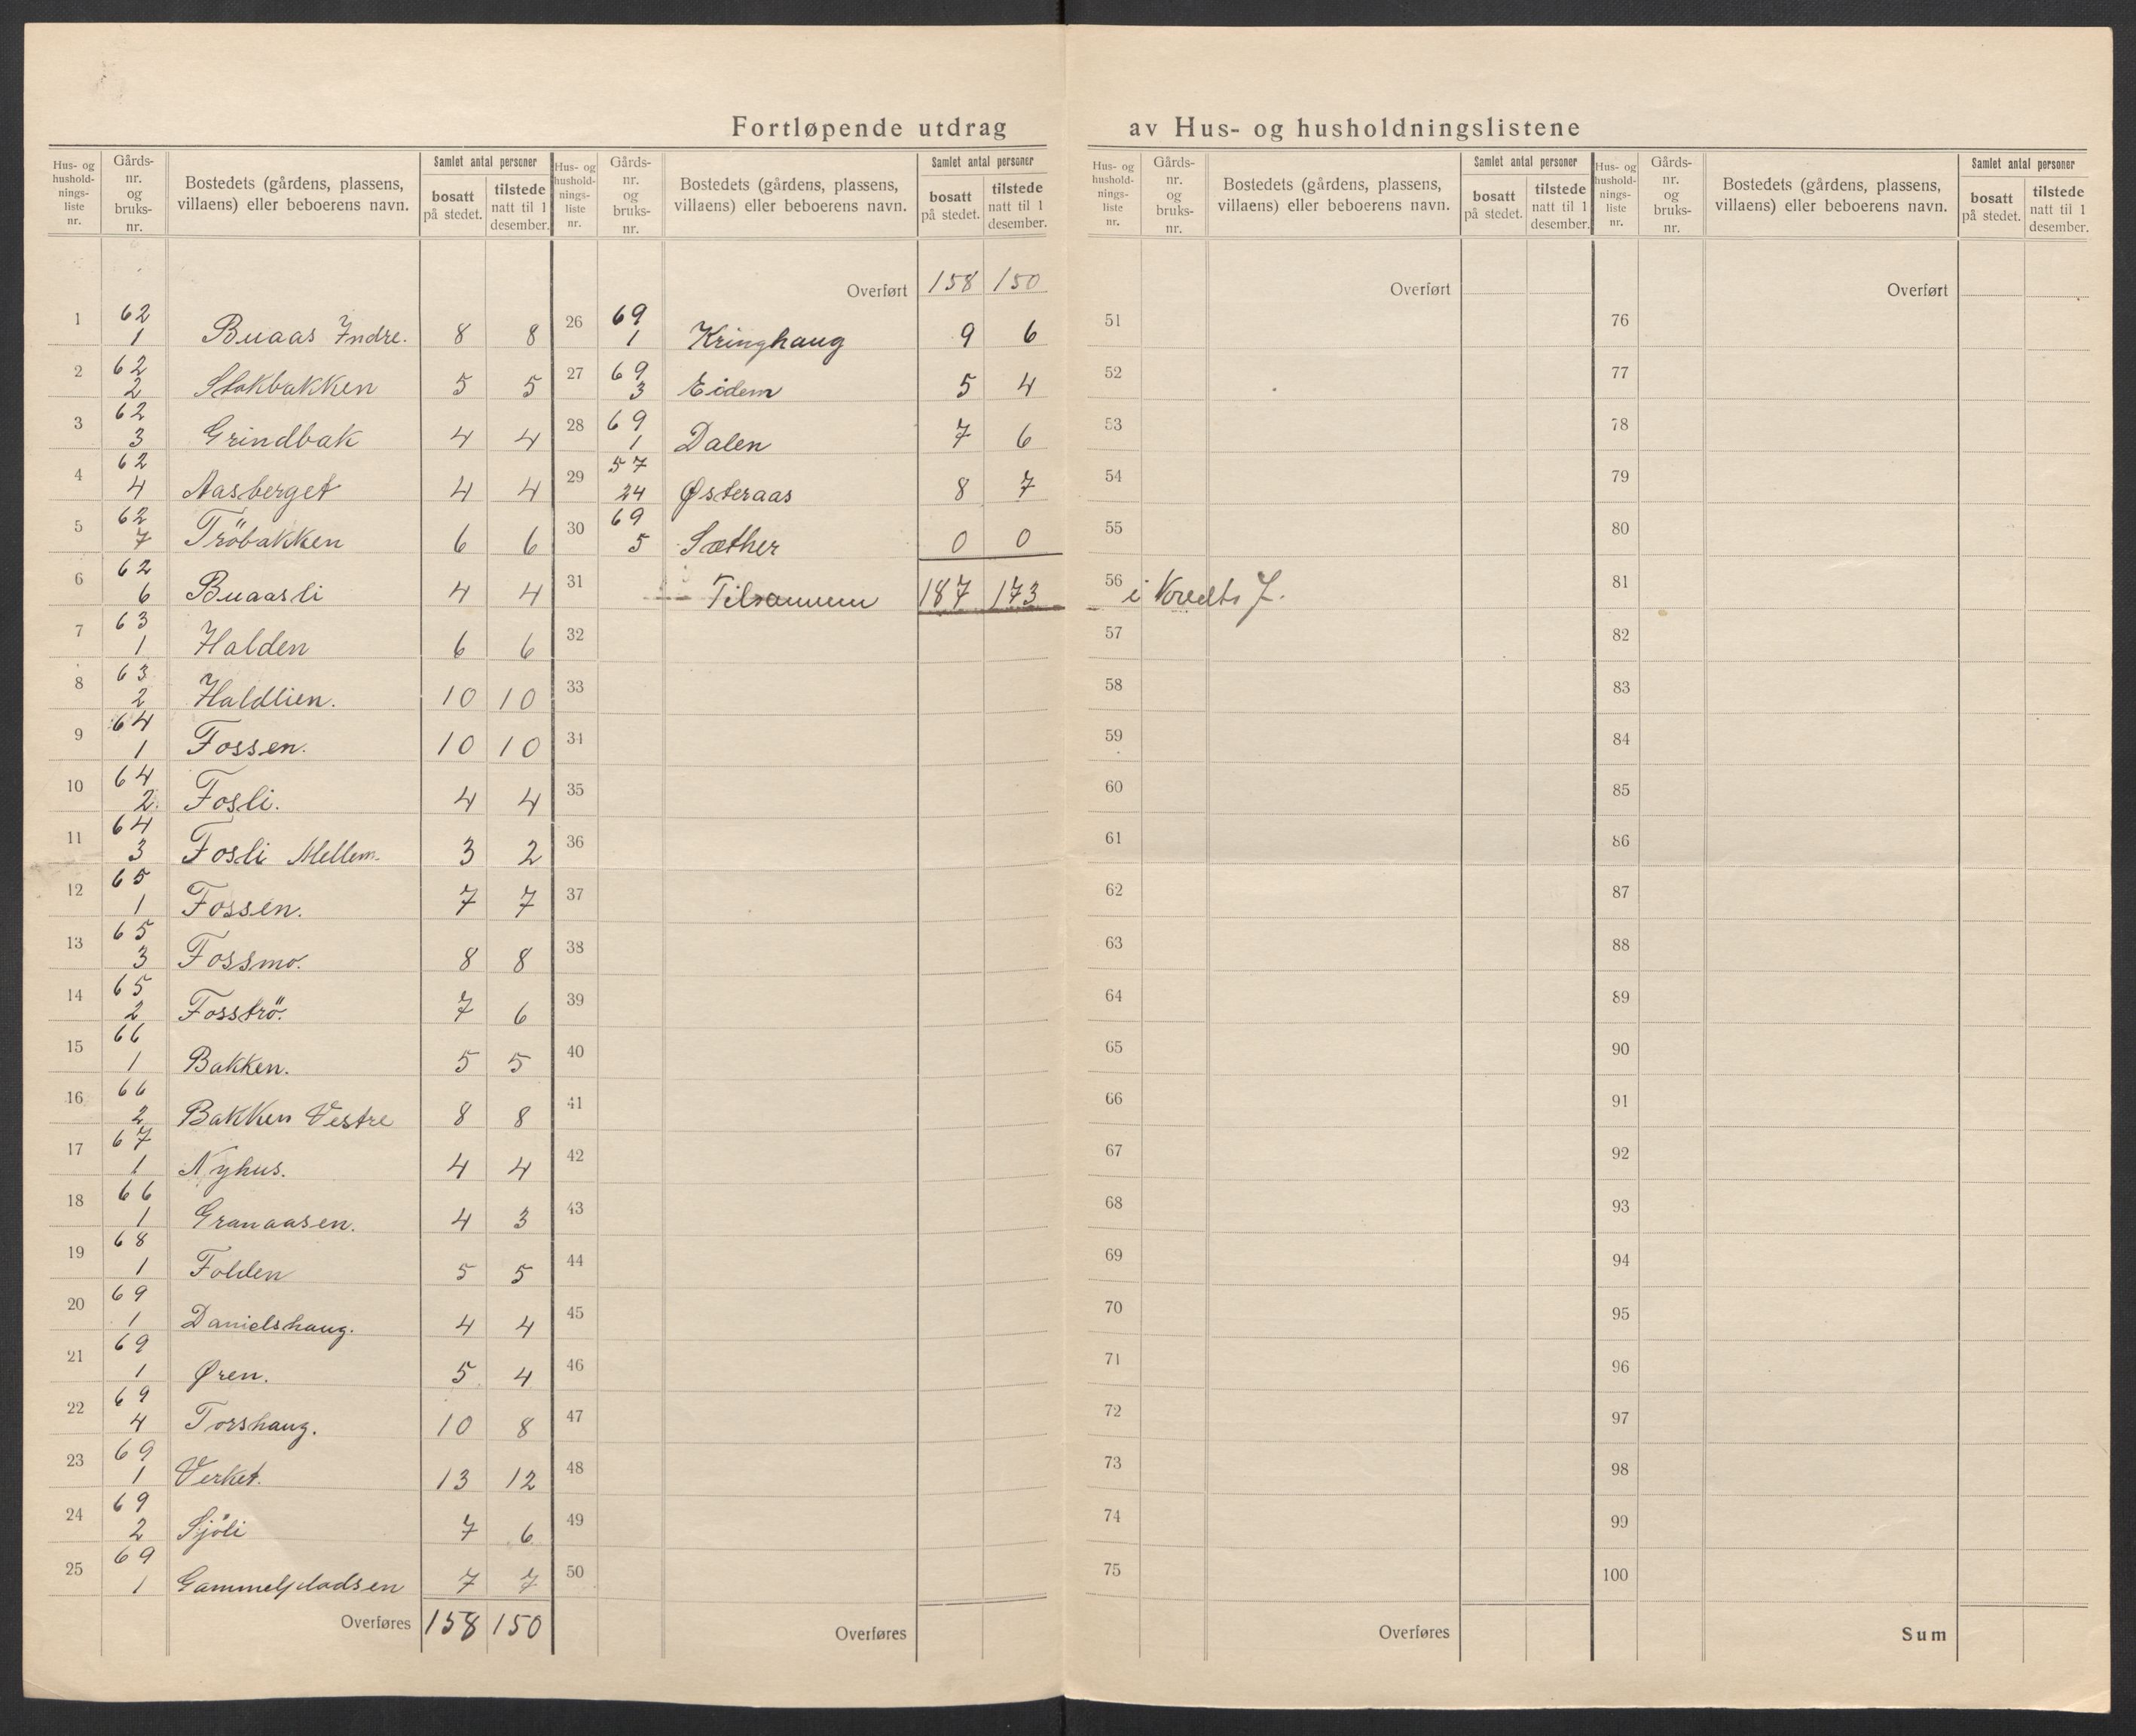 Fortløpende utdrag av Hus- og husholdningslistene
Hus- og husholdnings-liste nr. | Gårds-nr. og bruks-nr. | Bostedets (gårdens, plassens, villaens) eller beboerens navn. | Samlet antal personer | bosatt på stedet. | tilstede natt til 1 desember.
1 62 1 Buaas Indre. 8 8
2 62 2 Stokbakken 5 5
3 62 3 Grindbak 4 4
4 62 4 Aasberget 4 4
5 62 7 Tröbakken 6 6
6 62 6 Buaasli 4 4
7 63 1 Halden 6 6
8 63 2 Haldlien. 10 10
9 64 1 Fossen. 10 10
10 64 2. Fosli. 4 4
11 64 3 Fosli Mellem. 3 2
12 65 1 Fossen. 7 7
13 65 3 Fossmo. 8 8
14 65 2 Fosströ. 7 6
15 66 1 Bakken. 5 5
16 66 2 Bakken Vestre 8 8
17 67 1 Nyhus. 4 4
18 66 1 Granaasen. 4 3
19 68 1 Folden 5 5
20 69 1 Danielshaug. 4 4
21 69 1 Øren. 5 4
22 69 4 Torshaug. 10 8
23 69 1 Verket. 13 12
24 69 2 Sjöli 7 6
25 69 1 Gammelpladsen 7 7
Overføres 158 150
Hus- og husholdnings-liste nr. | Gårds-nr. og bruks-nr. | Bostedets (gårdens, plassens, villaens) eller beboerens navn. | Samlet antal personer | bosatt på stedet. | tilstede natt til 1 desember.
Overført 158 150
26 69 1 Kringhaug 9 6
27 69 3 Eidem 5 4
28 69 1 Dalen 7 6
29 57 24 Østeraas 8 7
30 69 5 Sæther 0 0
31 Tilsammen 187 173
32
33
34
35
36
37
38
39
40
41
42
43
44
45
46
47
48
49
50
Overføres
Hus- og husholdnings-liste nr. | Gårds-nr. og bruks-nr. | Bostedets (gårdens, plassens, villaens) eller beboerens navn. | Samlet antal personer | bosatt på stedet. | tilstede natt til 1 desember.
Overført
51
52
53
54
55
56 i
57
58
59
60
61
62
63
64
65
66
67
68
69
70
71
72
73
74
75
Overføres
Hus- og husholdnings-liste nr. | Gårds-nr. og bruks-nr. | Bostedets (gårdens, plassens, villaens) eller beboerens navn. | Samlet antal personer | bosatt på stedet. | tilstede natt til 1 desember.
Overført
76
77
78
79
80
81
82
83
84
85
86
87
88
89
90
91
92
93
94
95
96
97
98
99
100
Sum